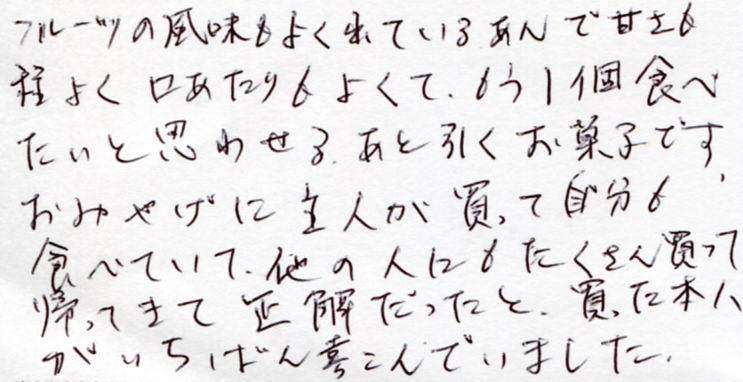 フルーツの風味もよく出ているあんで甘さも
程よく口あたりもよくて、もう1個食べ
たいと思わせる、あと引くお菓子です。
おみやげに主人が買って自分も
食べていて、他の人にもたくさん買って
帰ってきて正解だったと、買った本人
がいちばん喜こんでいました。